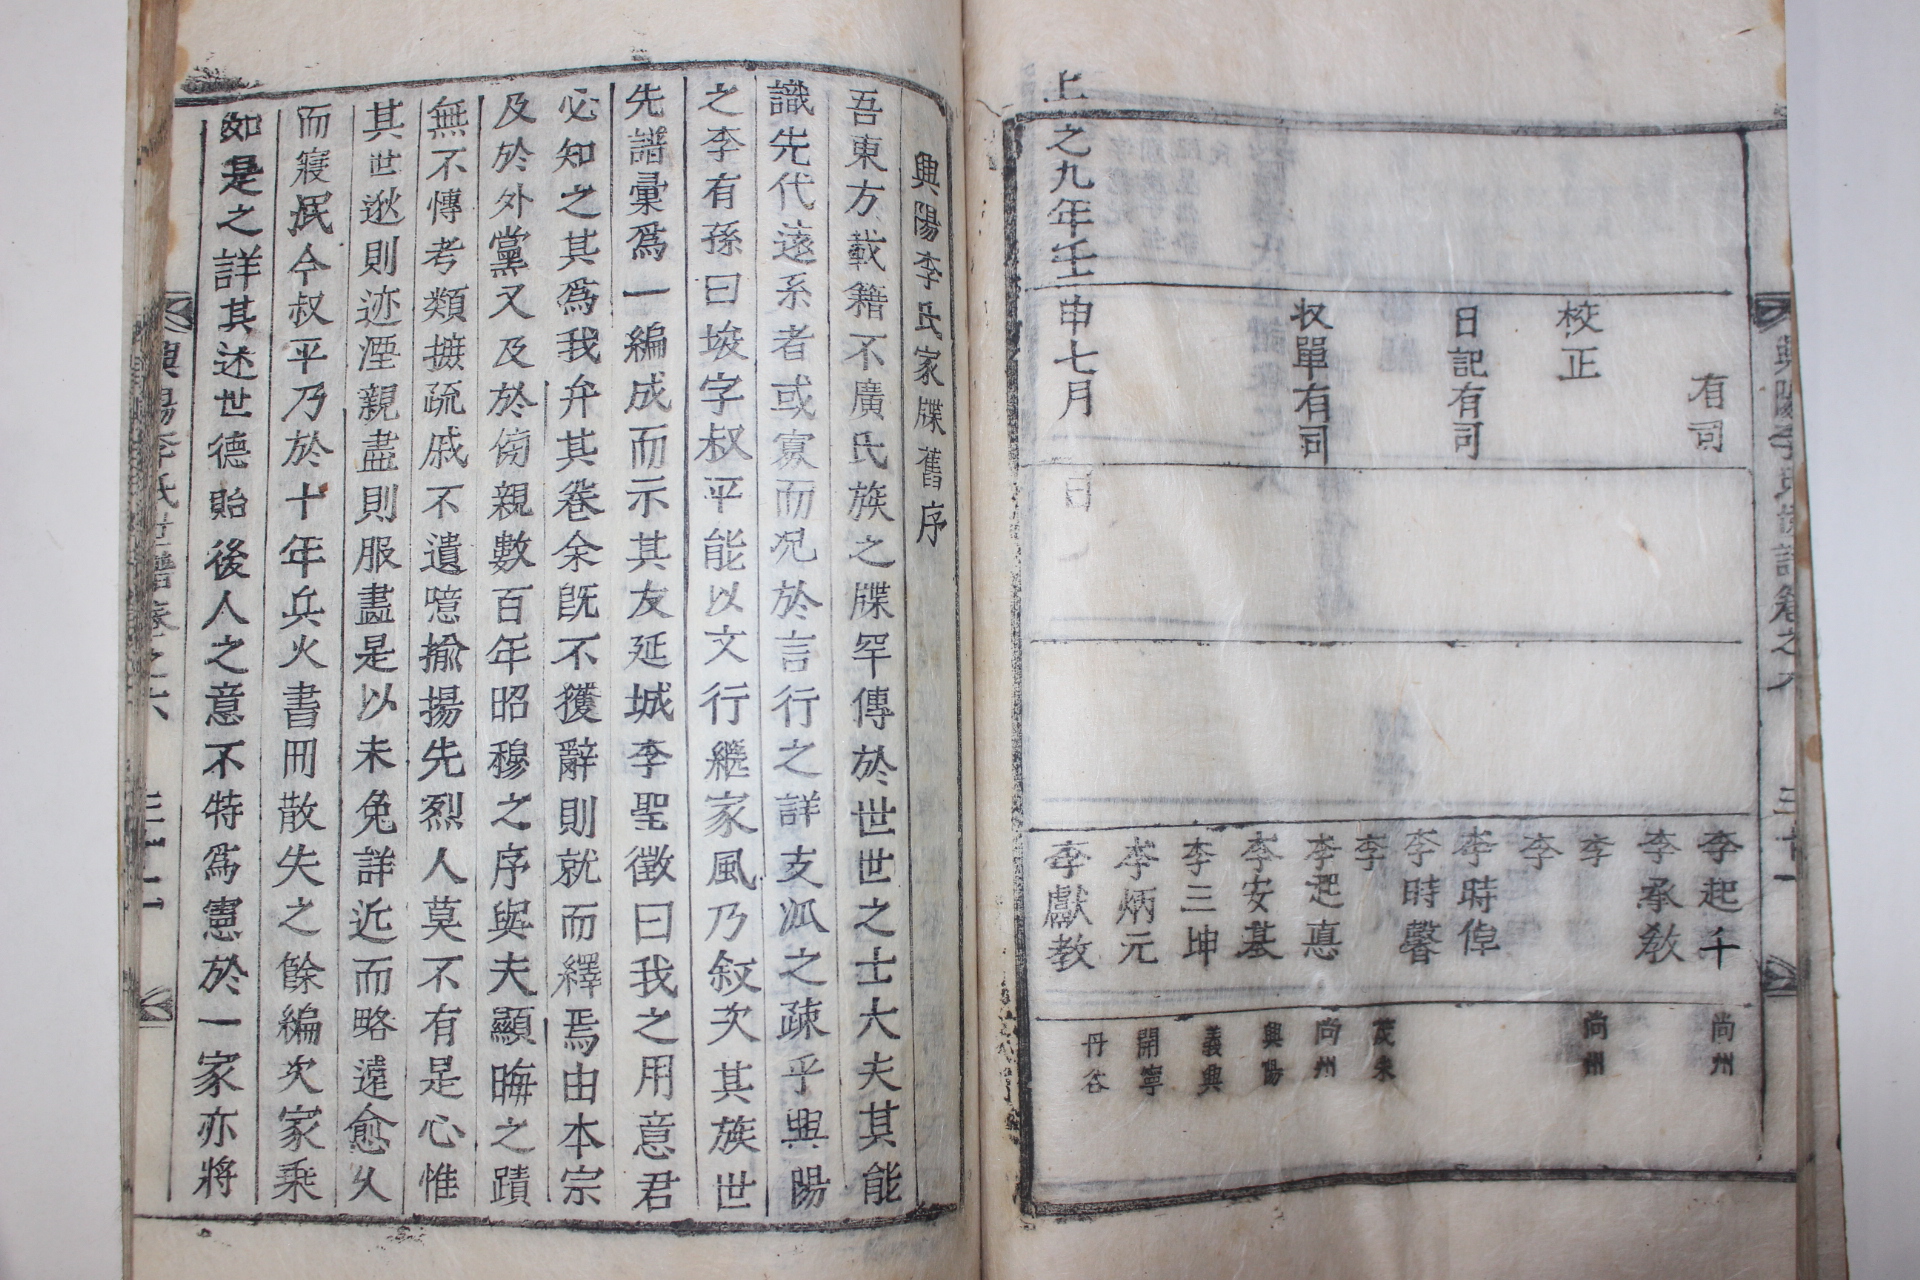 有司
校正
日記有司
収單有司
上之九年壬申七月 日
李起千 尙州
李承敎
李 尙州
李
李時倬
李時馨
李 茂朱
李起悳 尙州
李安基 興陽
李三坤 義興
李炳元 開寧
李獻敎 丹谷
興陽李氏家牒舊序
吾東方載籍不廣氏族之牒罕傳於世世之士大夫其能
識先代遠系者或寡而况於言行之詳支派之疎乎興陽
之李有孫曰埈字叔平能以文行繼家風乃敍次其族世
先譜彙爲一編成而示其友延城李聖徵曰我之用意君
必知之其爲我弁其卷余旣不獲辭則就而繹焉由本宗
及於外黨又及於傍親數百年昭穆之序與夫顯晦之蹟
無不傳考類摭疏戚不遺噫揄揚先烈人莫不有是心惟
其世逖則迹湮親盡則服盡是以未免詳近而略遠愈久
而寢泯今叔平乃於十年兵火書冊散失之餘編次家乘
如是之詳其述世德貽後人之意不特爲憲於一家亦將
興陽李氏世譜卷之六 三十二